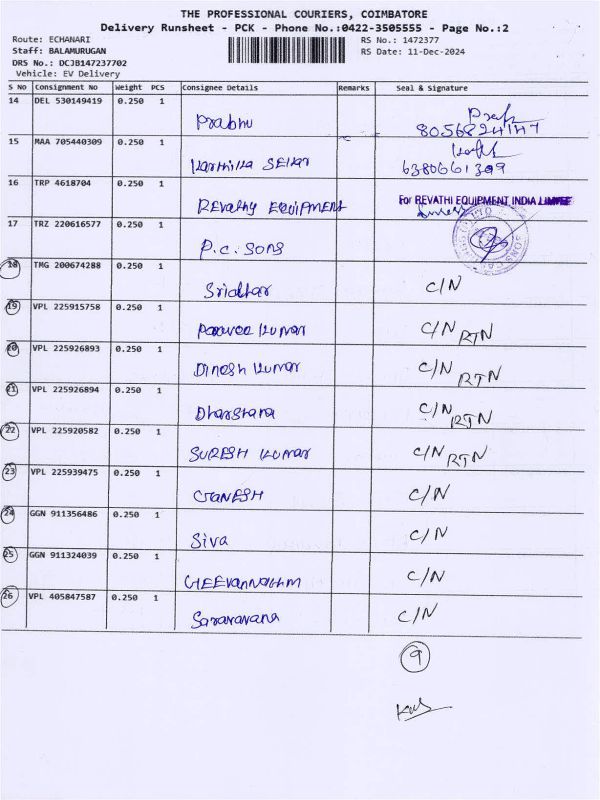 THE PROFESSIONAL COURIERS, COIMBATORE
Delivery Runsheet - PCK - Phone No.:0422-3505555 - Page No.:2
Route: ECHANARI RS No.: 1472377
Staff: BALAMURUGAN RS Date: 11-Dec-2024
DRS No.: DCJB147237702
Vehicle: EV Delivery
S No Consignment No Weight PCS Consignee Details Remarks Seal & Signature
14 DEL 530149419 0.250 1 Prabhu
15 MAA 705440309 0.250 1 Karthika SEkar 6380661399
16 TRP 4618704 0.250 1 REvathy EQUIPMENT For REVATHI EQUIPMENT INDIA LIMITED
17 TRZ 220616577 0.250 1 P.C. SONS
18 TMG 200674288 0.250 1 Sridhar C/N
19 VPL 225915758 0.250 1 Kumar C/N RTN
20 VPL 225926893 0.250 1 DINESH KUMAR C/N RTN
21 VPL 225926894 0.250 1 Dharshana C/N RTN
22 VPL 225920582 0.250 1 SURESH KUMAR C/N RTN
23 VPL 225939475 0.250 1 GANESH C/N
24 GGN 911356486 0.250 1 Siva C/N
25 GGN 911324039 0.250 1 C/N
26 VPL 405847587 0.250 1 Saravanana C/N
9